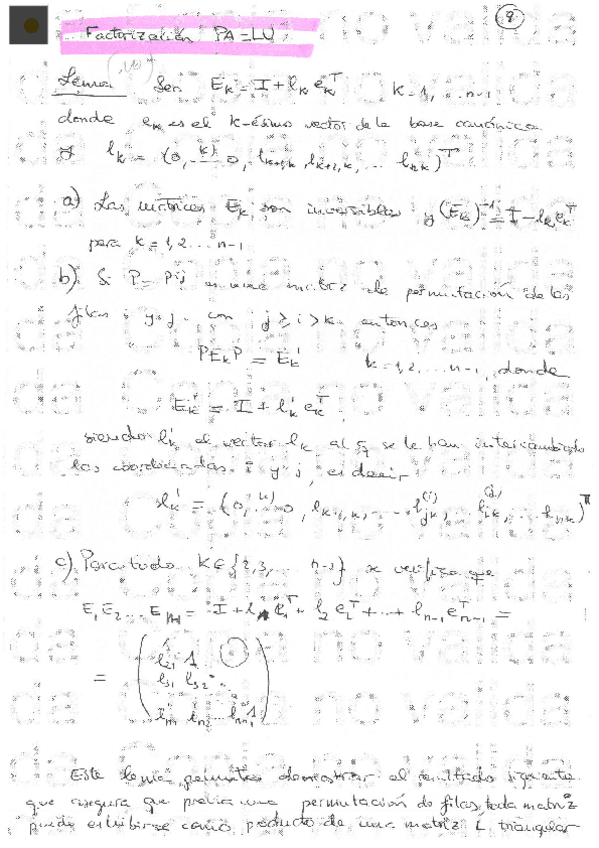 9
Factorización PA=LU
Lema Sea E_k = I + l_k e_k^T k=1,...n-1
donde e_k es el k-ésimo vector de la base canónica
y l_k = (0, ..^(k).. 0, l_{k+1,k}, l_{k+2,k}, ... l_{nk})^T
a) Las matrices E_k son inversibles y (E_k)^{-1} = I - l_k e_k^T
para k=1,2...n-1
b) Si P = P_ij es una matriz de permutación de las
filas i y j con j ≥ i > k entonces
P E_k P = E'_k k=1,2,...n-1, donde
E'_k = I + l'_k e_k^T
siendo l'_k el vector l_k al q se le han intercambiado
las coordenadas i y j, es decir
l'_k = (0, ..^(k).. 0, l_{k+1,k}, ... l_{jk}^(i), ... l_{ik}^(j), ... l_{n,k})^T
c) Para todo k ∈ {2,3,... n-1} se verifica que
E_1 E_2 ... E_{n-1} = I + l_1 e_1^T + l_2 e_2^T + ... + l_{n-1} e_{n-1}^T =
= ( 1
l_21 1 0
l_31 l_32 ...
l_n1 l_n2 ... l_{nn-1} 1 )
Este lema permite demostrar el resultado siguiente
que asegura que previa una permutación de filas, toda matriz
puede escribirse como producto de una matriz L triangular